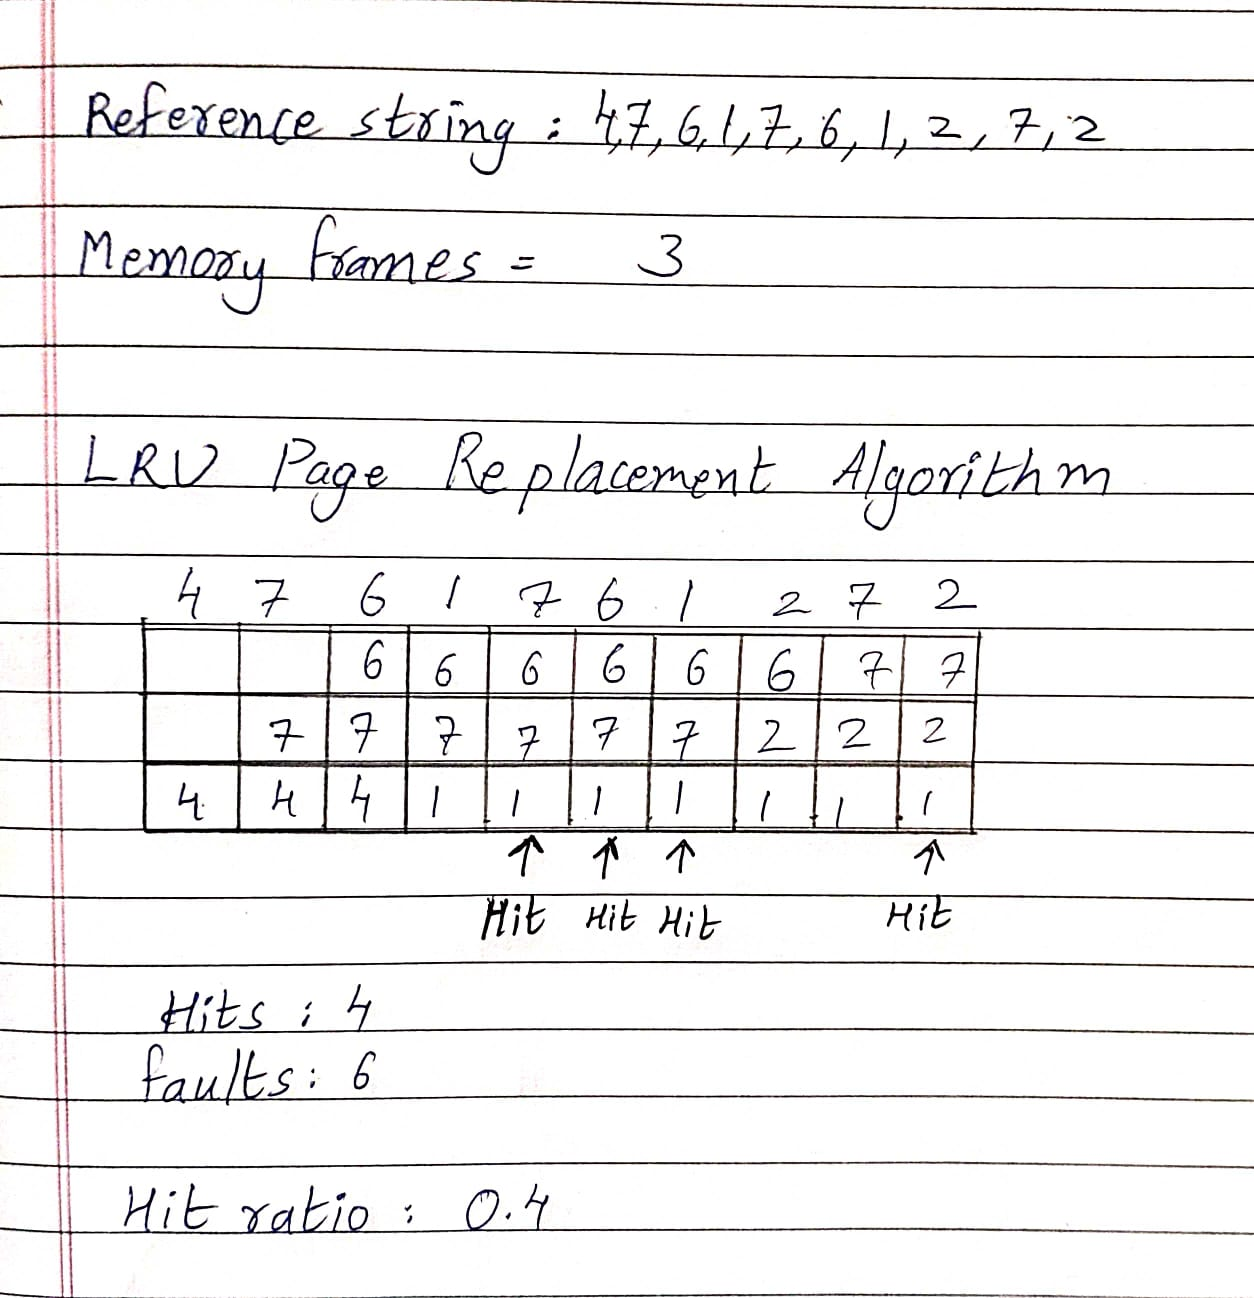 Reference string : 4,7,6,1,7,6,1,2,7,2
Memory frames = 3
LRU Page Replacement Algorithm
4 7 6 1 7 6 1 2 7 2
6 6 6 6 6 6 7 7
7 7 7 7 7 7 2 2 2
4 4 4 1 1 1 1 1 1 1
↑ ↑ ↑ ↑
Hit Hit Hit Hit
Hits : 4
faults : 6
Hit ratio : 0.4